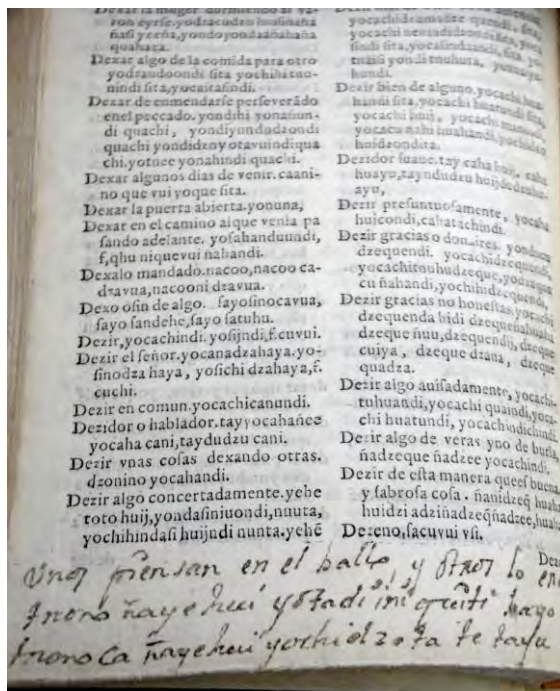 Dexar la muger durmiendo al va-
ron
ñasi yecña, yondoyondaañahaña
quahaza.
Dexar algo de la comida para otro
yodzandoondi sita yochihi tno-
nindi sita, yocaitasindi.
Dexar de enmendarse perseverãdo
enel peccado. yondihi yonasiun-
di quachi, yondiyundodzondi
quachi yondidzoy otavuindi qua
chi. yotnee yonahindi quachi.
Dexar algunos dias de venir. caani-
no que vui yoque sita.
Dexar la puerta abierta. yonuna,
Dexar en el camino alque venia pa
sando adelante. yosahanduundi,
s, qhu niquevui nahandi.
Dexalo mandado. nacoo, nacoo ca-
dzavua, nacooni dzavua.
Dexo ofin de algo. sayosinocavua,
sayo sandehe, sayo satuhu.
Dezir, yocachindi. yosijndi, s. cuvui.
Dezir el señor. yocanadzahaya. yo-
sinodza haya, yosichi dzahaya, s.
cuchi.
Dezir en comun. yocachicanundi.
Dezidor o hablador. tay yocahañee
yocaha cani, tay dudzu cani.
Dezir vnas cosas dexando otras.
dzonino yocahandi.
Dezir algo concertadamente. yehe
toto huij, yondasiniuondi, nuuta,
yochihindasi huijndi nunta. yehẽ
sindi sita, yocasindaandi, sita,
hundi.
Dezir bien de alguno. yocachi hua
handi sita, yocachi huatundi sita,
yocachi huij, yocachi
yocacu nahi huahandi, yochidzo
huidzondita.
Dezidor suaue. tay caha huij, caha
huayu, tayndudzu huij
ayu,
Dezir presuntuosamente, yocaha
huicondi, cahatachindi.
Dezir gracias o donaires. yonducu
dzequendi. yocachidzequendi,
yocachitnuhudzeque, yodzaqua
cu ñahandi, yochihidzequendi,
Dezir gracias no honestas, yocachi
dzequenda hidi dzequeñahuahi
dzeque ñuu, dzequendij, dzeque
cuiya, dzeque dzana, dzeque
quadza.
Dezir algo auisadamente, yocachi-
tuhuandi, yocachi quaindi, yoca-
chi huatundi, yocachindichindi,
Dezir algo de veras y no de burla,
ñadzeque ñadzee yocachindi.
Dezir de esta manera quees buena
y sabrosa cosa. ñanidzeq̃ huaha
huidzi adziñadzeq̃ñadzee, huaha
Dezeno, sacuvui vsi.
Dezi
Unos piensan en el baile y otros lo
tnono ñayehui yotadi ini
tnono ca ñayehui yochidzota te tayu